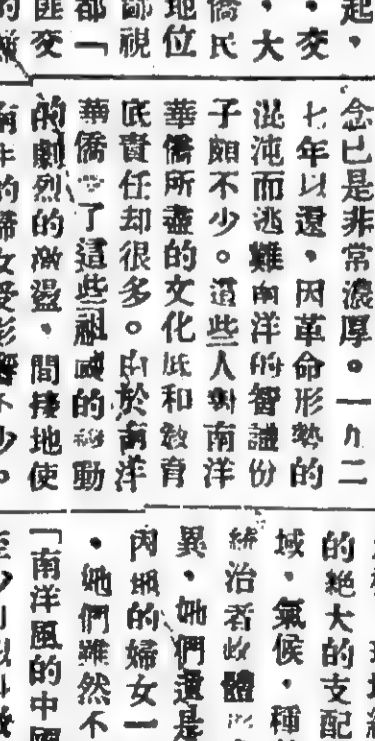 起，
・交
・大
僑民
地位
鄙視
都「
匪交
的
念已是非常濃厚。一九二
七年以還，因革命形勢的
混沌而逃難南洋的智識份
子頗不少。這些人對南洋
華僑所盡的文化底和教育
底責任却很多。由於南洋
華僑 了這些祖國的 動
的劇烈的激盪，間接地使
南洋的婦女受影響不少。
的絕大的支配
域，氣候，種
統治者 體
異，她們還是
內地的婦女一
，她們雖然不
「南洋風的中國
至少